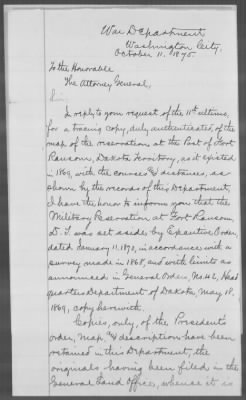 War Department
Washington City,
October 11, 1875.
To the Honorable
The Attorney General,
Sir:
In reply to your request of the 11th ultimo,
for a tracing copy, duly authenticated, of the
map of the reservation at the Post of Fort
Ransom, Dakota Territory, as it existed
in 1869, with the courses and distances, as
shown by the records of this Department,
I have the honor to inform you that the
Military Reservation at Fort Ransom,
D. T. was set aside by Executive Order,
dated January 11, 1870, in accordance with a
survey made in 1868, and with limits as
announced in General Orders, No. 42, Head
quarters Department of Dakota, May 18,
1869, copy herewith.
Copies, only, of the President's
order, map and description have been
retained in this Department, the
originals having been filed in the
General Land Office, whence it is